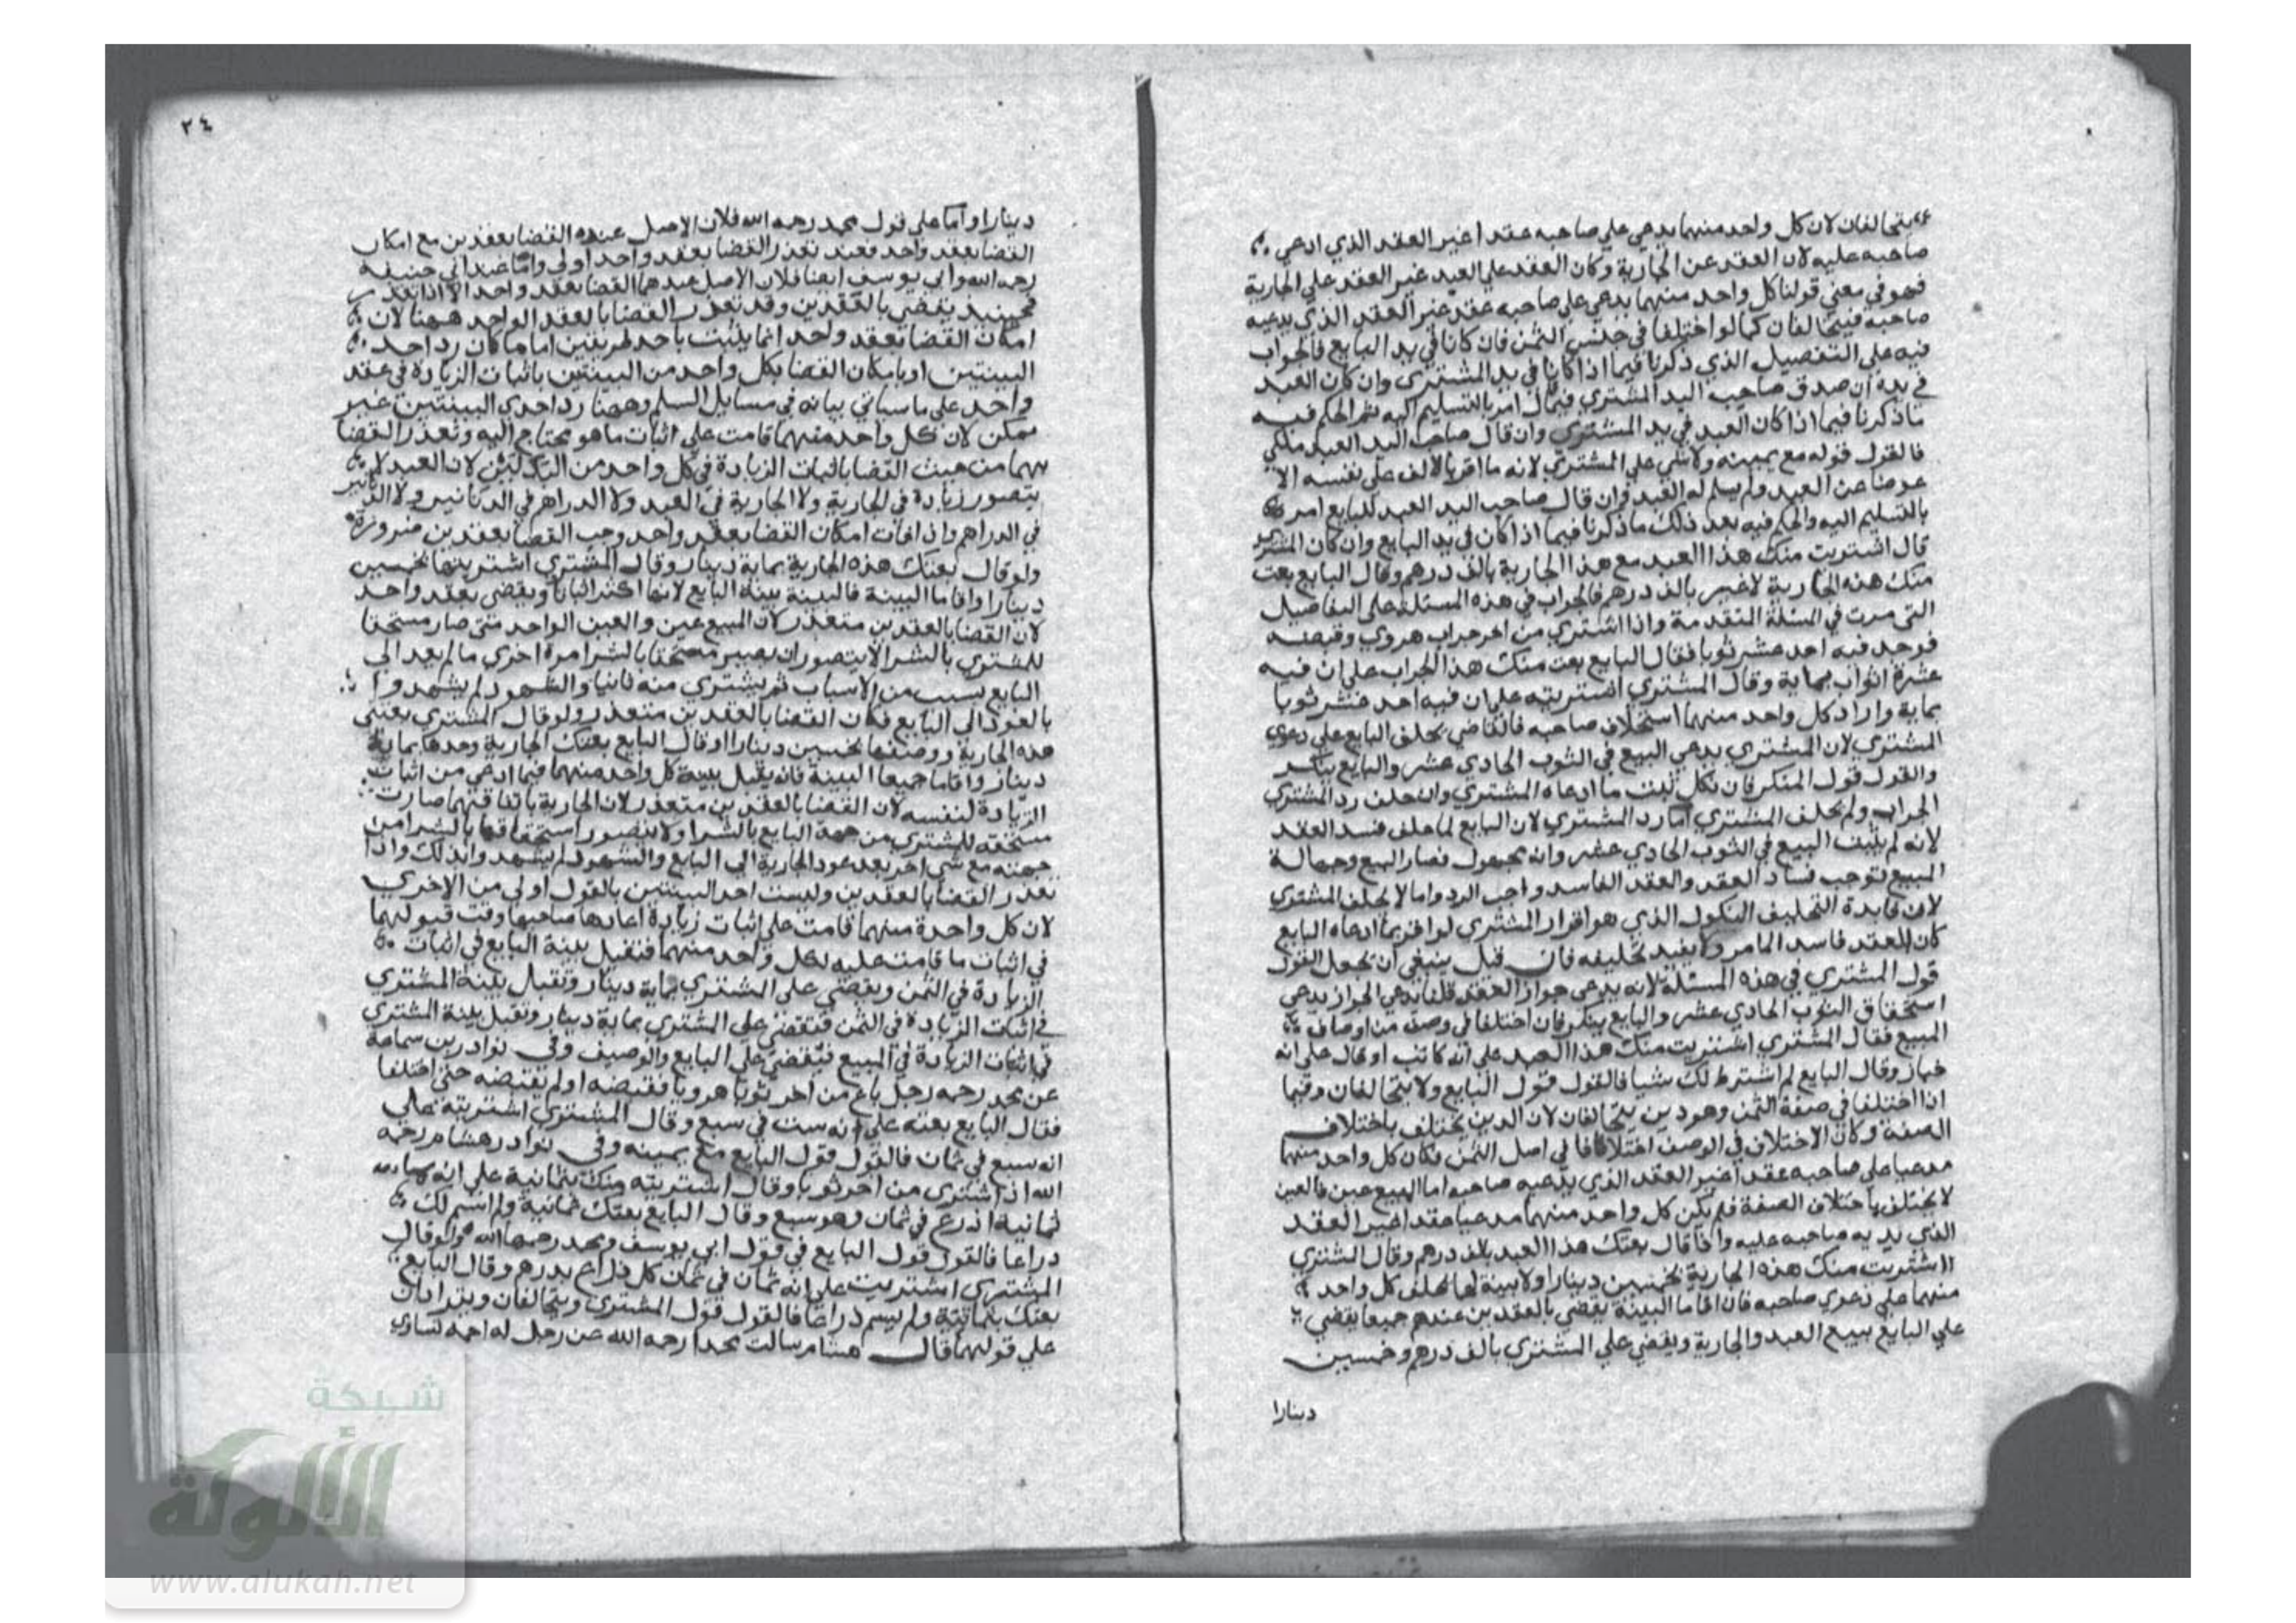 يتحالفان لان كل واحد منهما يدعي علي صاحبه عقدا غير العقد الذي ادعي
صاحبه عليه لان العقد عن الجارية وكان العقد علي العبد غير العقد علي الجارية
فهو في معني قولنا كل واحد منهما يدعي علي صاحبه عقد غير العقد الذي يدعيه
صاحبه فيتحالفان كما لو اختلفا في جنس الثمن فان كانا في يد البايع فالجواب
فيه علي التفصيل الذي ذكرنا فيما اذا كانا في يد المشتري وان كان العبد
في يده ان صدق صاحب اليد المشتري فيما امر بالتسليم اليه ثم الحكم فيه
ما ذكرنا فيما اذا كان العبد في يد المشتري وان قال صاحب اليد العبد ملكي
فالقول قوله مع يمينه ولا شي علي المشتري لانه ما اقر بالالف علي نفسه الا
عوضا عن العبد ولم يسلم له العبد وان قال صاحب اليد العبد للبايع امر
بالتسليم اليه والحكم فيه بعد ذلك ما ذكرنا فيما اذا كان في يد البايع وان كان المشتري
قال اشتريت منك هذا العبد مع هذا الجارية بالف درهم وقال البايع بعت
منك هذه الجارية لا غير بالف درهم فالجواب في هذه المسئلة علي التفاصيل
التي مرت في المسئلة المتقدمة واذا اشتري من اخر جراب هروي وقبضه
فوجد فيه احد عشر ثوبا فقال البايع بعت منك هذا الجراب علي ان فيه
عشرة اثواب بماية وقال المشتري اشتريته علي ان فيه احد عشر ثوبا
بماية واراد كل واحد منهما استحلاف صاحبه فالقاضي يحلف البايع علي دعوي
المشتري لان المشتري يدعي البيع في الثوب الحادي عشر والبايع ينكر
والقول قول المنكر فان نكل ثبت ما ادعاه المشتري وان حلف رد المشتري
الجراب ولم يحلف المشتري اما رد المشتري لان البايع لما حلف فسد العقد
لانه لم يثبت البيع في الثوب الحادي عشر وانه مجهول فصار البيع وجهالة
المبيع توجب فساد العقد والعقد الفاسد واجب الرد واما لا يحلف المشتري
لان فايدة التحليف النكول الذي هو اقرار المشتري لو اقر بما ادعاه البايع
كان العقد فاسد المامر ولا يفيد تحليفه فان قيل ينبغي ان يجعل القول
قول المشتري في هذه المسئلة لانه يدعي جواز العقد قلنا يدعي الجواز يدعي
استحقاق الثوب الحادي عشر والبايع ينكر فان اختلفا في وصف من اوصاف
المبيع فقال المشتري اشتريت منك هذا العبد علي انه كاتب او قال علي انه
خباز وقال البايع لم اشترط لك شيا فالقول قول البايع ولا يتحالفان وفيما
اذا اختلفا في صفة الثمن وهو دين يتحالفان لان الدين يختلف باختلاف
الصفة وكان الاختلاف في الوصف اختلافا في اصل الثمن فكان كل واحد منهما
مدعيا علي صاحبه عقدا غير العقد الذي يدعيه صاحبه اما المبيع عين فالعين
لا يختلف باختلاف الصفة فلم يكن كل واحد منهما مدعيا عقدا غير العقد
الذي صاحبه عليه واذا قال بعتك هذا العبد بالف درهم وقال المشتري
اشتريت منك هذه الجارية بخمسين دينارا ولا بينة لهما يحلف كل واحد
منهما علي دعوي صاحبه فان اقاما البينة يقضي بالعقدين عندهم جميعا يقضي
علي البايع ببيع العبد والجارية ويقضي علي المشتري بالف درهم وخمسين
دينارا
٢٤
دينارا واما علي قول محمد رحمه الله فلان الاصل عنده القضا بعقدين مع امكان
القضا بعقد واحد فعند تعذر القضا بعقد واحد اولي واما عند ابي حنيفة
رحمه الله وابي يوسف ايضا فلان الاصل عندهما القضا بعقد واحد الا اذا تعذر
فحينيذ يقضي بالعقدين وقد تعذر القضا بالعقد الواحد ههنا لان
امكان القضا بعقد واحد انما يثبت باحد طريقين اما ما كان رد احد
البينتين او بامكان القضا بكل واحد من البينتين باثبات الزيادة في عقد
واحد علي ما سياتي بيانه في مسايل السلم وههنا رد احدي البينتين غير
ممكن لان كل واحد منهما قامت علي اثبات ما هو محتاج اليه وتعذر القضا
بهما من حيث القضا باثبات الزيادة في كل واحد من البدلين لان العبد لا
يتصور زيادة في الجارية ولا الجارية في العبد ولا الدراهم في الدنانير ولا الدنانير
في الدراهم واذا فات امكان القضا بعقد واحد وجب القضا بعقدين ضرورة
ولو قال بعتك هذه الجارية بماية دينار وقال المشتري اشتريتها بخمسين
دينارا واقاما البينة فالبينة بينة البايع لانها اكثر اثباتا ويقضي بعقد واحد
لان القضا بالعقدين متعذر لان المبيع عين والعين الواحد متي صار مستحقا
للمشتري بالشرا لا يتصور ان يصير مستحقا بالشرا مرة اخري ما لم يعد الي
البايع بسبب من الاسباب ثم يشتري منه ثانيا والشهود لم يشهدوا
بالعود الي البايع فكان القضا بالعقدين متعذر ولو قال المشتري بعتني
هذه الجارية ووصيفها بخمسين دينارا وقال البايع بعتك الجارية وحدها بماية
دينار واقاما جميعا البينة فانه يقبل بينة كل واحد منهما فيما ادعي من اثبات
الزيادة لنفسه لان القضا بالعقدين متعذر لان الجارية باتفاقهما صارت
مستحقة للمشتري من جهة البايع بالشرا ولا يتصور استحقاقها بالشرا من
جهته مع شي اخر بعد عود الجارية الي البايع والشهود لم يشهدوا بذلك واذا
تعذر القضا بالعقدين وليست احد البينتين بالقول اولي من الاخري
لان كل واحدة منهما قامت علي اثبات زيادة صاحبها وقت قبولهما
في اثبات ما قامت عليه لكل واحد منهما فنقبل بينة البايع في اثبات
الزيادة في الثمن ويقضي علي المشتري بماية دينار وتقبل بينة المشتري
في اثبات الزيادة في الثمن فتقضي علي المشتري بماية دينار وتقبل بينة المشتري
في اثبات الزيادة في المبيع فيقضي علي البايع والوصيف وفي نوادر بن سماعة
عن محمد رحمه رجل باع من اخر ثوبا هرويا فقبضه او لم يقبضه حتي اختلفا
فقال البايع بعته علي انه ست في سبع وقال المشتري اشتريته علي
انه سبع في ثمان فالقول قول البايع مع يمينه وفي نوادر هشام رحمه
الله اذا اشتري من اخر ثوبا وقال اشتريته منك بثمانية علي انه
ثمانية اذرع في ثمان وهو سبع وقال البايع بعتك ثمانية ولم اسم لك
دراعا فالقول قول البايع في قول ابي يوسف ومحمد رحمهما الله ولو قال
المشتري اشتريت علي انه ثمان في ثمان كل ذراع بدرهم وقال البايع
بعتك بثمانية ولم يسم ذراعا فالقول قول المشتري ويتحالفان ويترادان
علي قولهما قال هشام سالت محمدا رحمه الله عن رجل له اجمة تساوي
شبكة
الألوكة
www.alukah.net